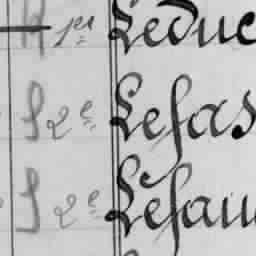 H 1er Leduc
S 2e Lefas
S 2e Lefau